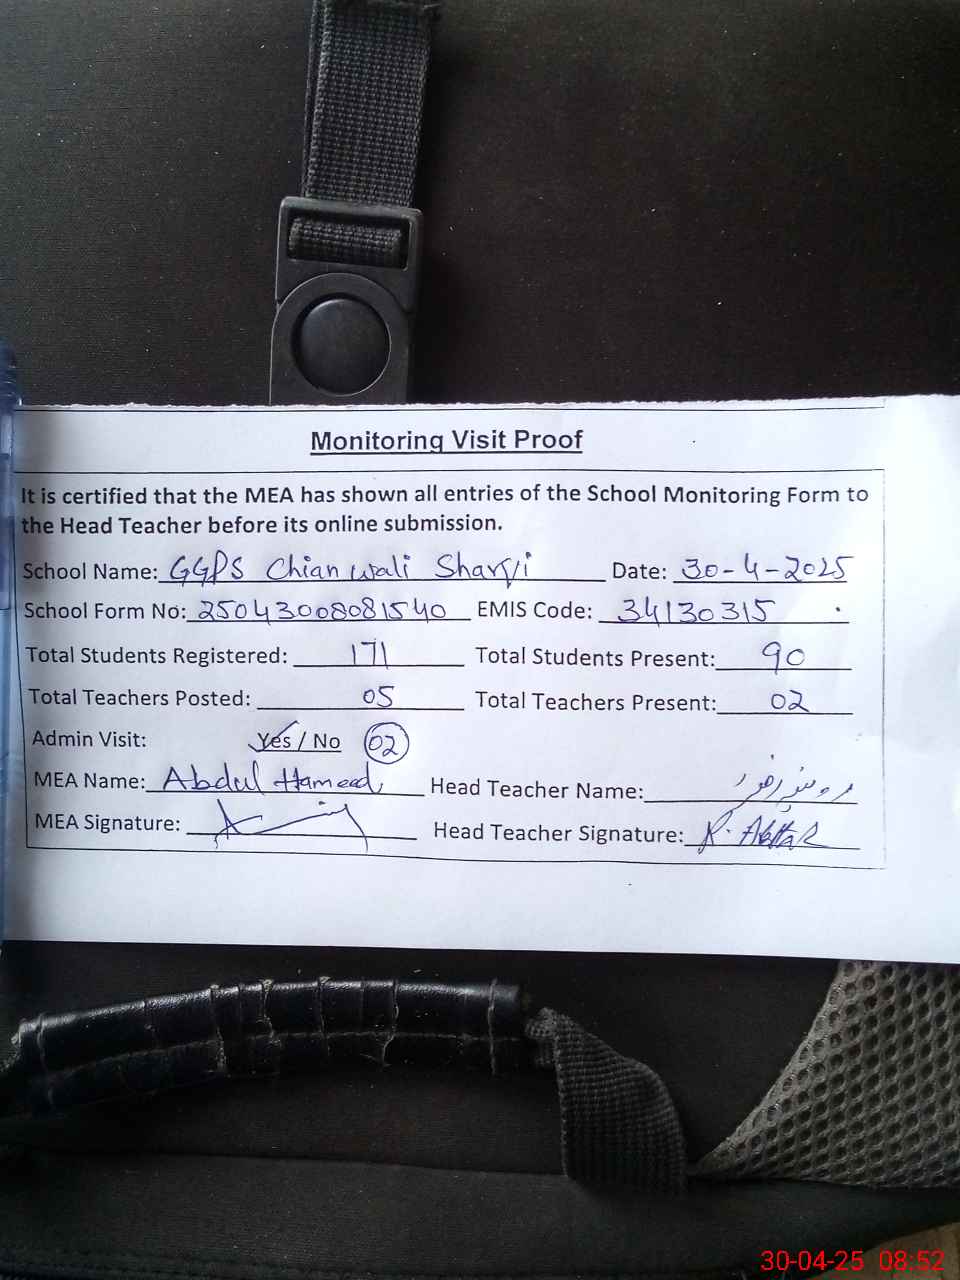 Monitoring Visit Proof
It is certified that the MEA has shown all entries of the School Monitoring Form to
the Head Teacher before its online submission.
School Name: GGPS Chianwali Sharqi Date: 30-4-2025
School Form No: 250430008081540 EMIS Code: 34130315
Total Students Registered: 171 Total Students Present: 90
Total Teachers Posted: 05 Total Teachers Present: 02
Admin Visit: Yes / No 02
MEA Name: Abdul Hameed Head Teacher Name:
MEA Signature: Head Teacher Signature: R. Akhtar
30-04-25 08:52